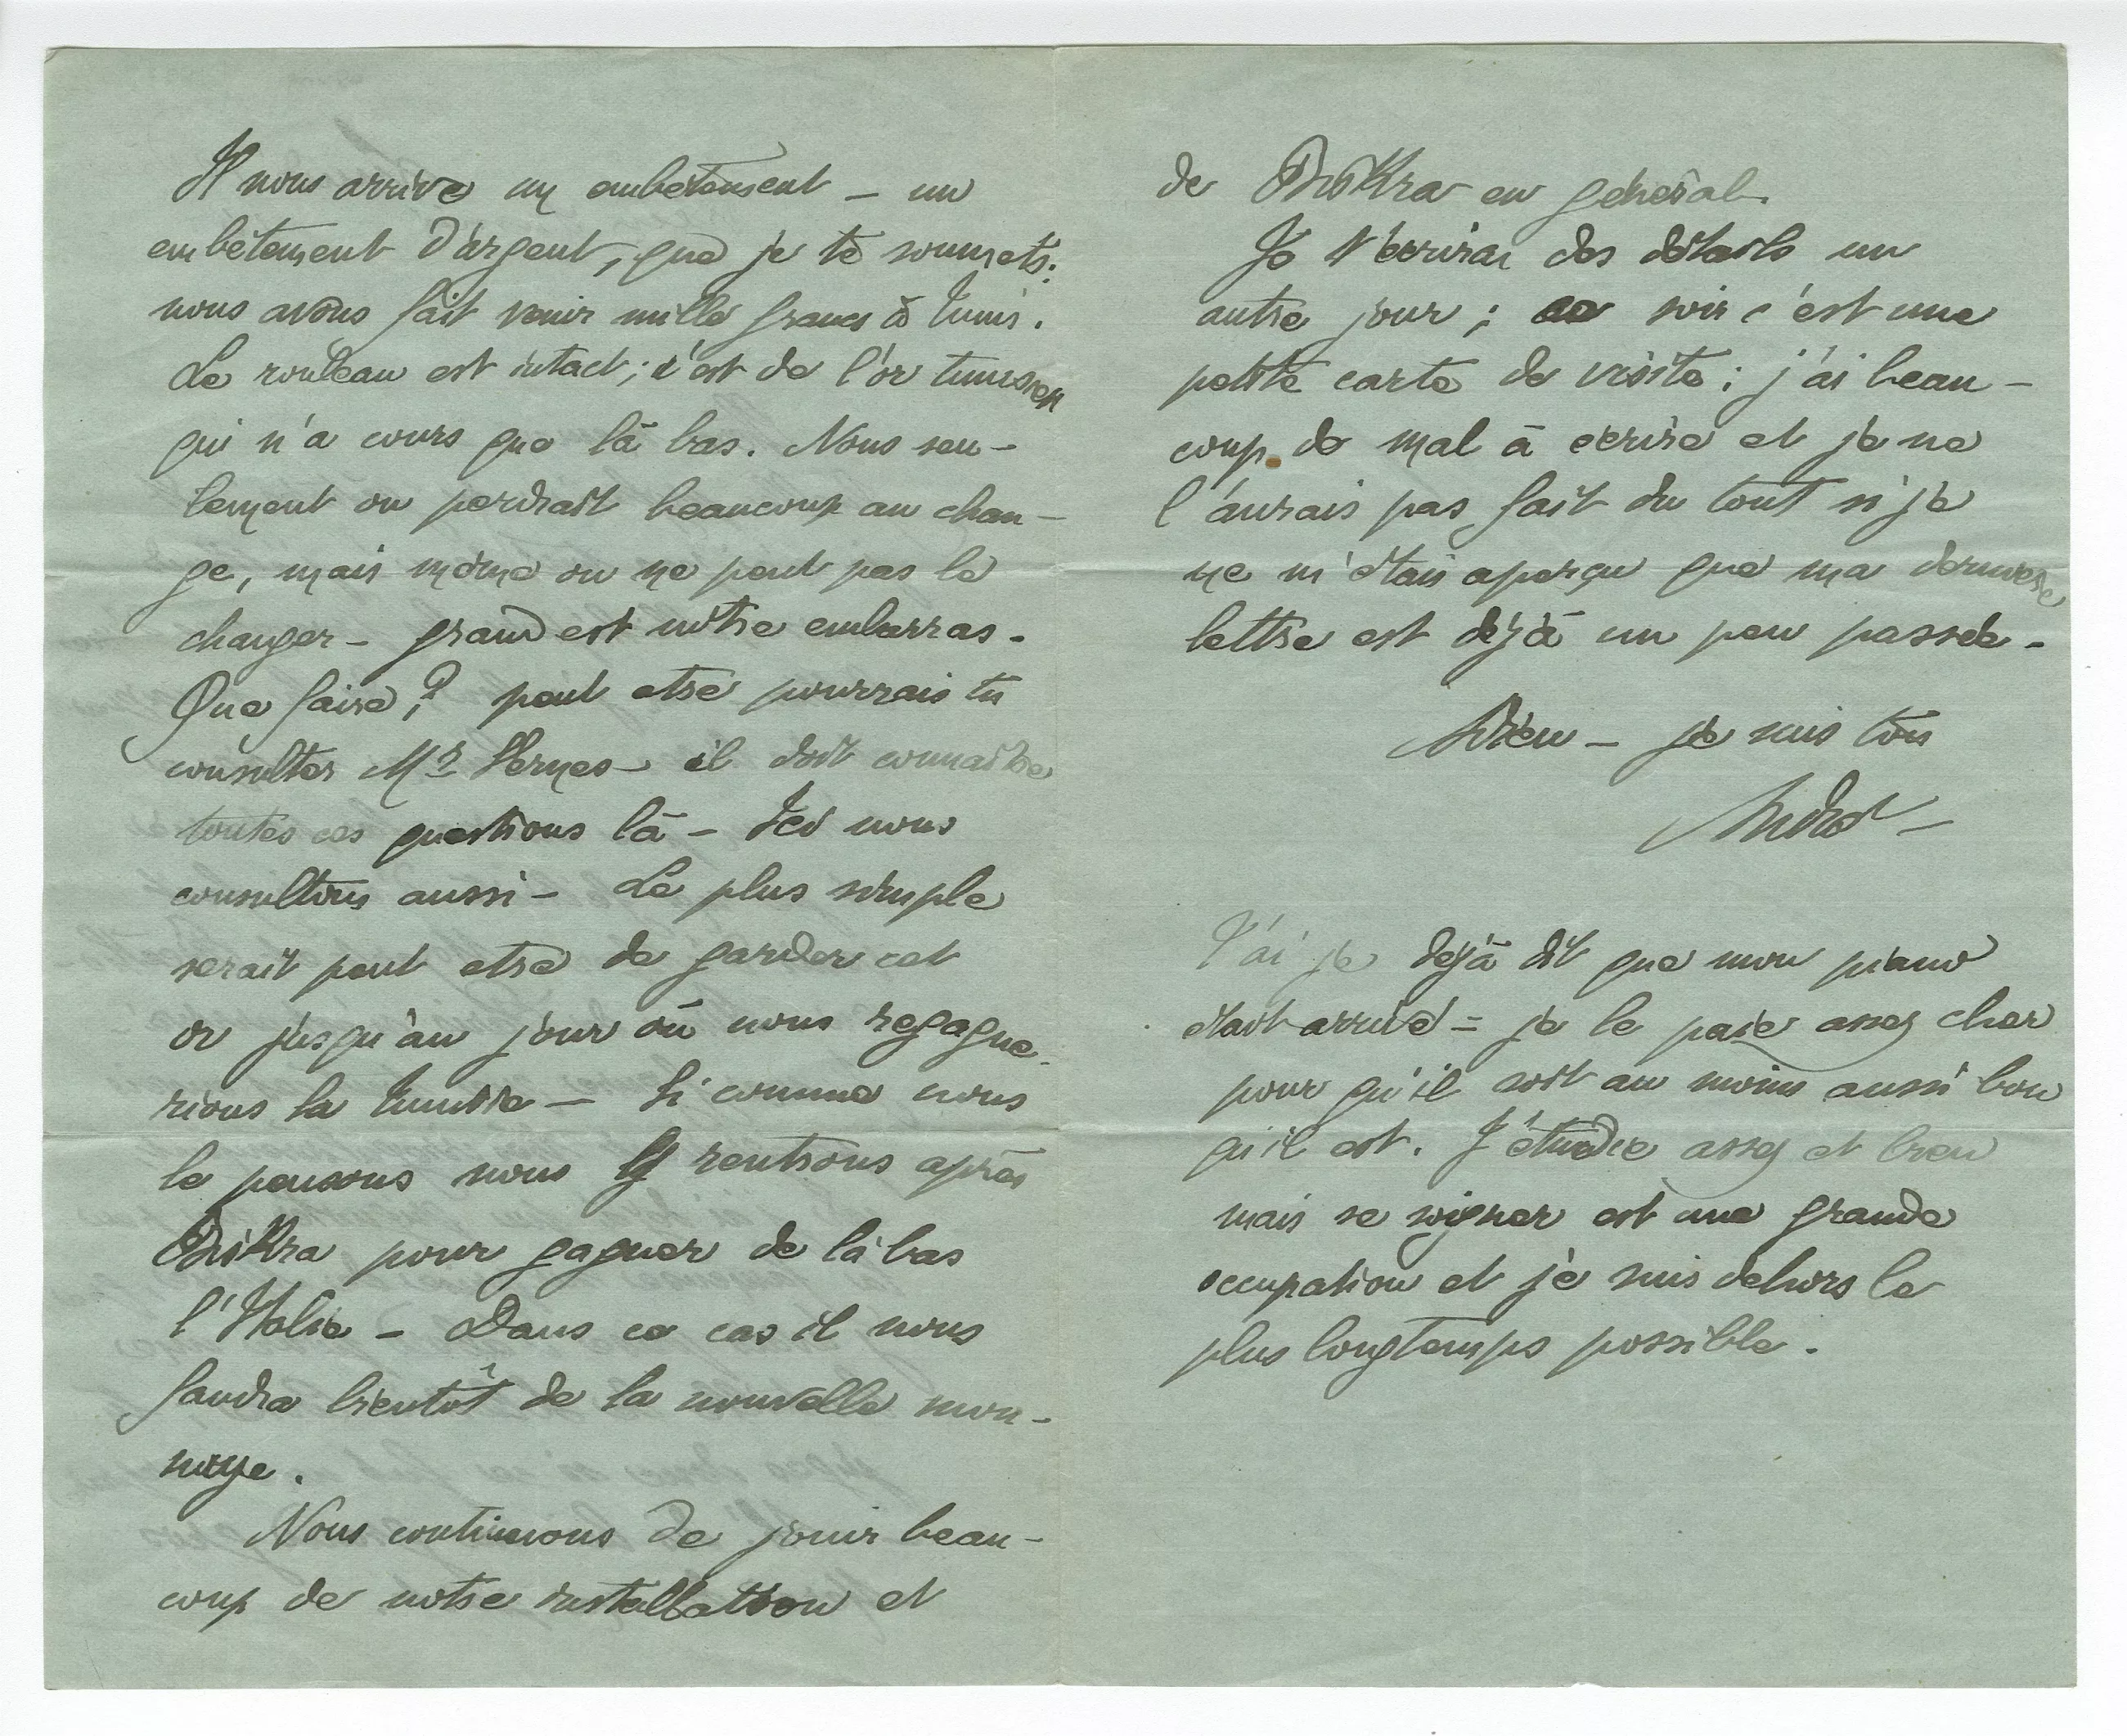 Il nous arrive un embêtement – un
embêtement d'argent, que je te soumets.
nous avons fait venir mille francs à Tunis.
Le rouleau est intact ; c'est de l'or tunisien
qui n'a cours que là bas. Nous seu-
lement on perdrait beaucoup au chan-
ge, mais même on ne peut pas le
changer – grand est nôtre embarras.
Que faire ? peut etre pourrais tu
consulter Mr Vernes – il doit connaitre
toutes ces questions là – Ici nous
consultons aussi – Le plus simple
serait peut etre de garder cet
or jusqu'au jour où nous regagne-
rions la Tunisie – Si comme nous
le pensons nous y rentrons après
Biskra pour gagner de là bas
l'Italie – Dans ce cas il nous
faudra bientôt de la nouvelle mon-
naye.
Nous continuons de jouir beau-
coup de notre installation et
de Biskra en général.
Je t'écrirai des détails un
autre jour ; ce soir c'est une
petite carte de visite ; j'ai beau-
coup de mal à écrire et je ne
l'aurais pas fait du tout si je
ne m'étais aperçu que ma dernière
lettre est déjà un peu passée –
Adieu – je suis ton
André –
T'ai je déjà dit que mon piano
était arrivé = je le paie assez cher
pour qu'il soit au moins aussi bon
qu'il est. J'étudie assez et bien
mais se soigner est une grande
occupation et je suis dehors le
plus longtemps possible.